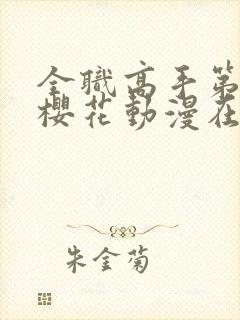 全職高手第
櫻花動漫在
朱金菊